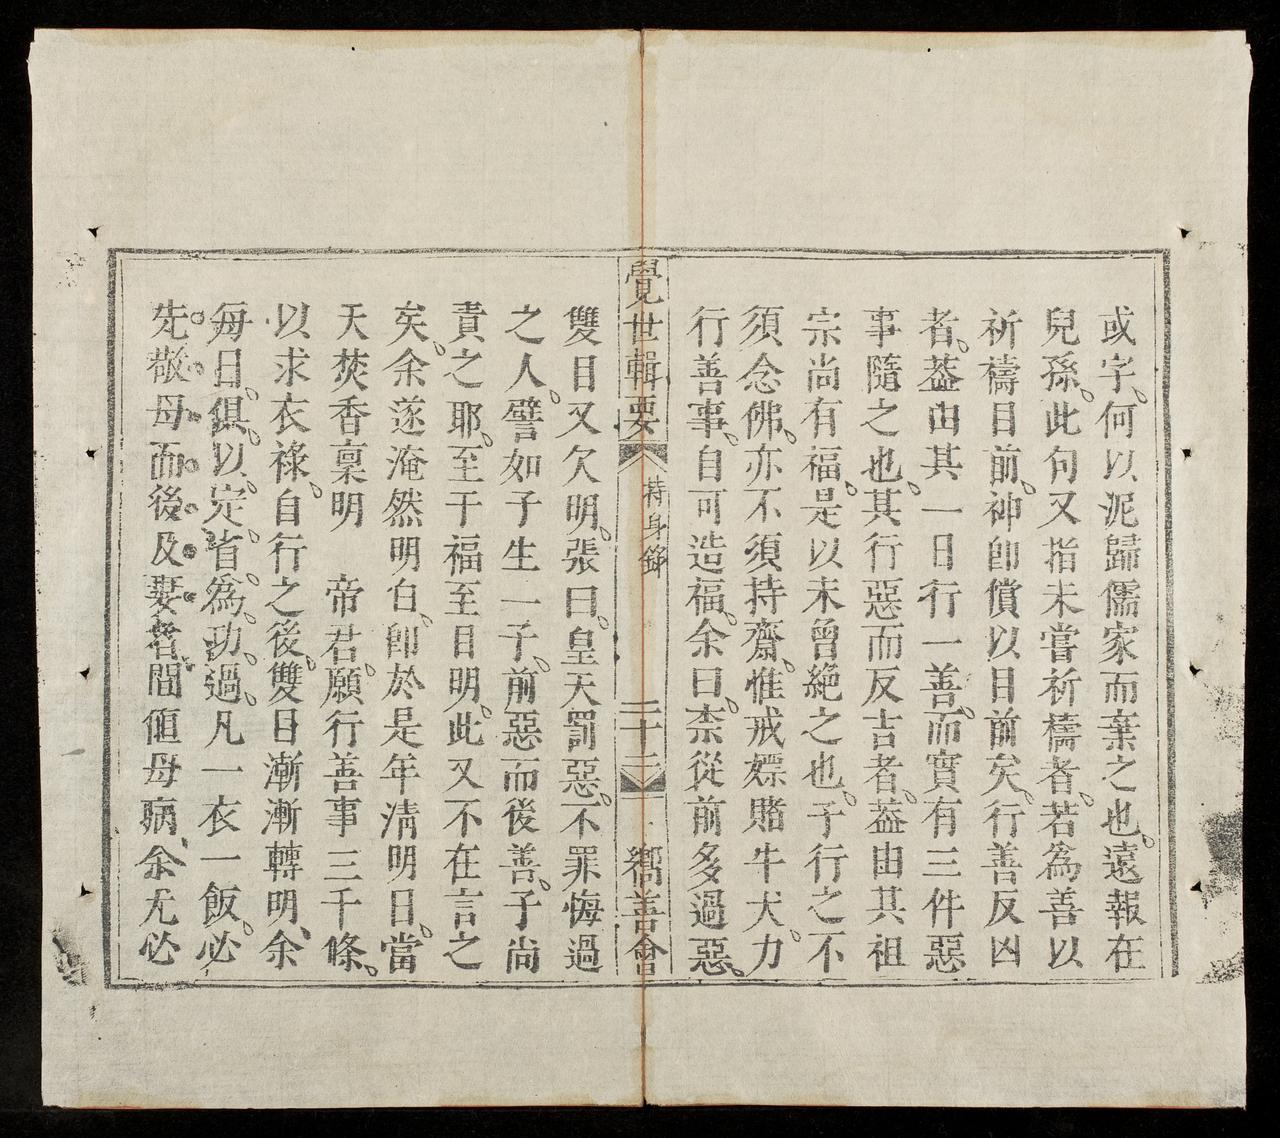 或字何以泥歸儒家而棄之也遠報在
兒孫此句又指未嘗祈禱者若為善以
祈禱目前神卽償以目前矣行善反凶
者葢由其一日行一善而實有三件惡
事隨之也其行惡而反吉者葢由其祖
宗尚有福是以未曾絶之也子行之不
須念佛亦不須持齋惟戒嫖賭牛犬力
行善事自可造福余曰柰從前多過惡
覺世輯要 持身錄 二十三 嚮善會
雙目又欠明張曰皇天罰惡不罪悔過
之人譬如子生一子前惡而後善子尚
責之耶至于福至目明此又不在言之
矣余遂淹然明白卽於是年淸明日當
天焚香稟明 帝君願行善事三千條
以求衣祿自行之後雙目漸漸轉明余
每日俱以定省為功過凡一衣一飯必
先敬母而後及妻者間值母病余尤必